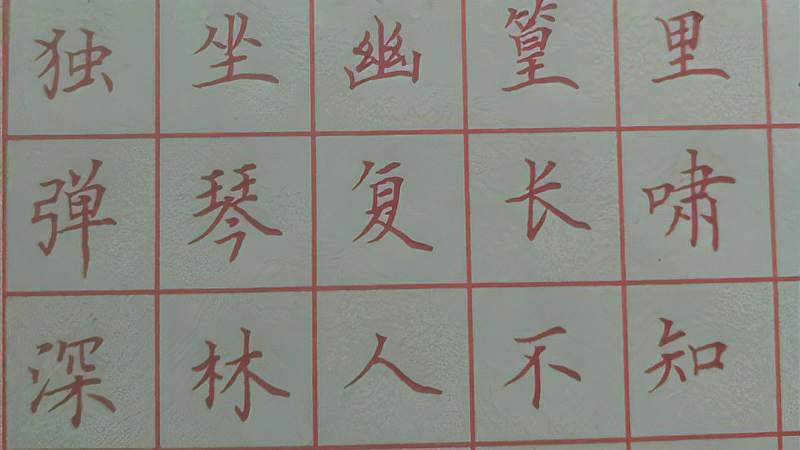 独坐幽篁里
弹琴复长啸
深林人不知